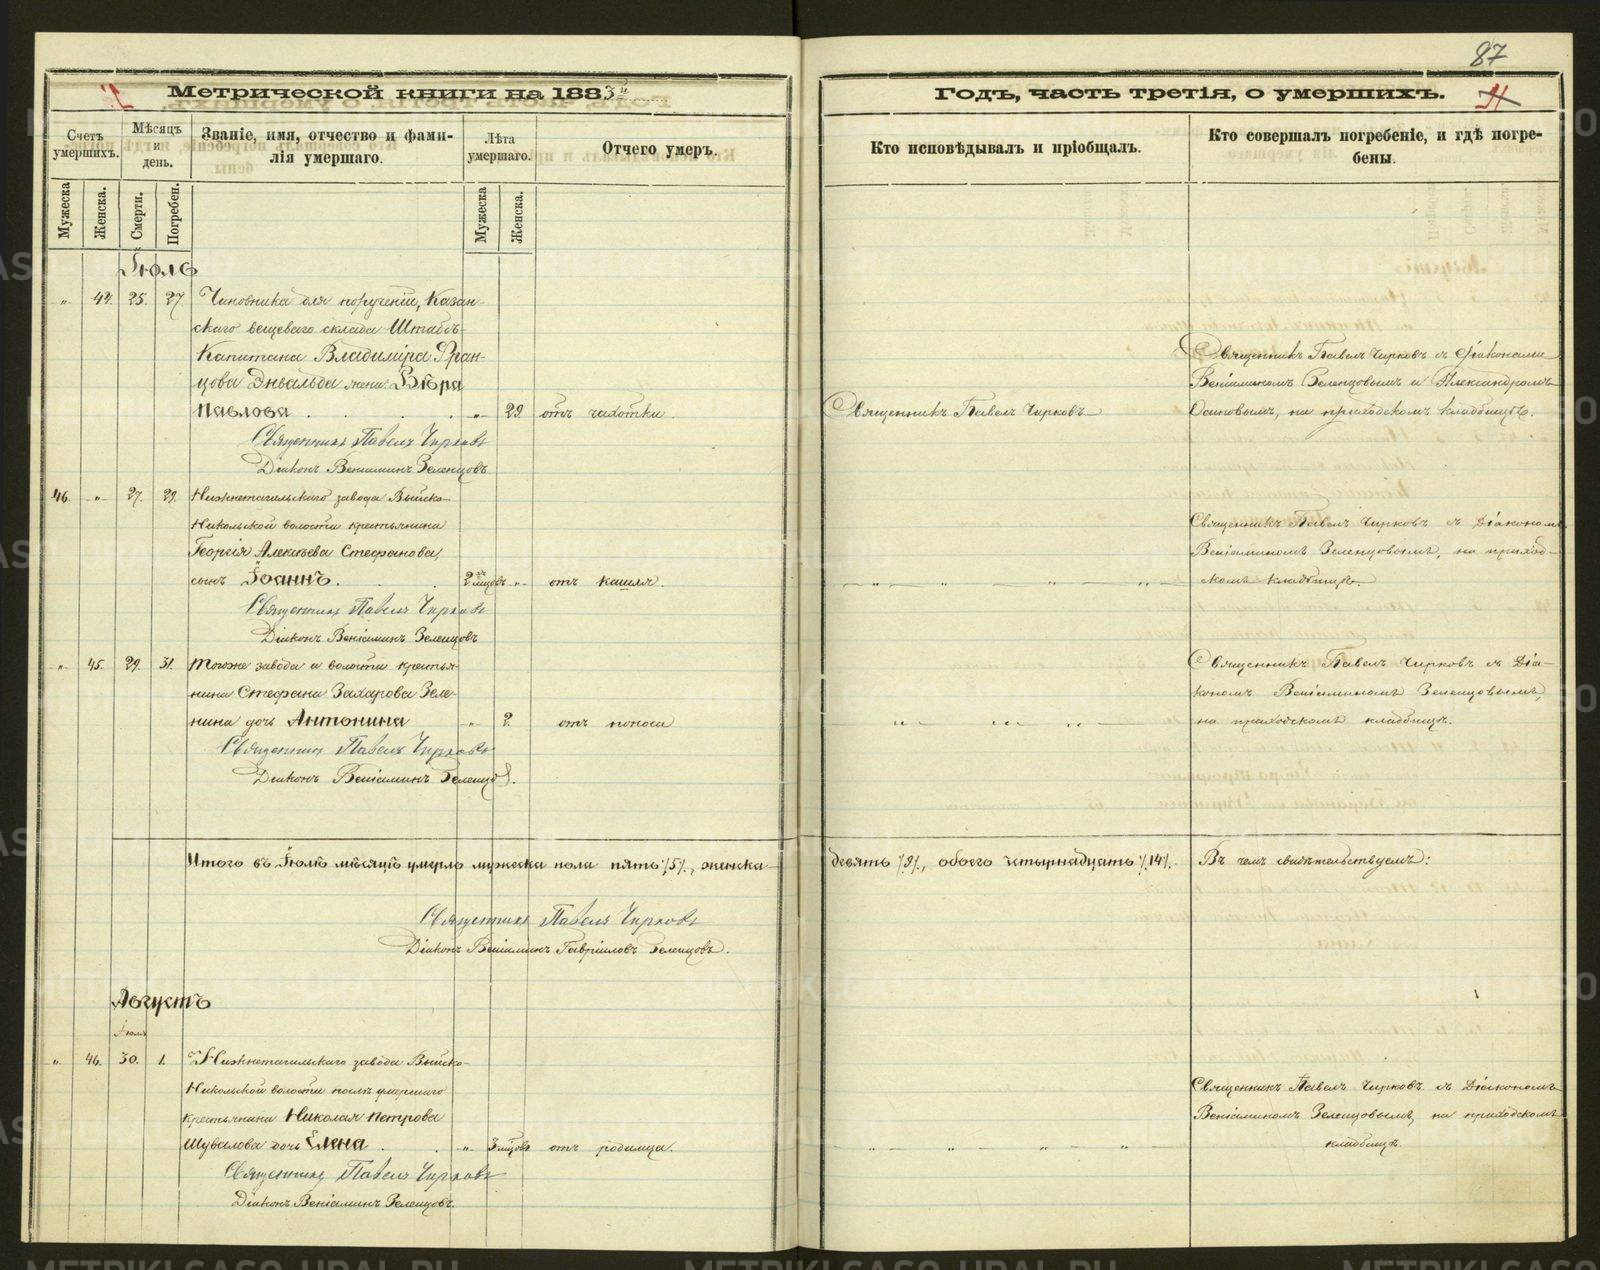 87
Метрической книги на 1883й
Годъ, часть третія, о умершихъ.
Счетъ умершихъ.
Мѣсяцъ и день.
Званіе, имя, отчество и фами-
лія умершаго.
Лѣта умершаго.
Отчего умеръ.
Кто исповѣдывалъ и пріобщалъ.
Кто совершалъ погребеніе, и гдѣ погре-
бены.
Мужеска
Женска.
Смерти.
Погребен.
Мужеска
Женска.
Іюль
„ 44. 25. 27. Чиновника для порученій, Казан-
скаго вещеваго склада Штабсъ-
Капитана Владиміра Фран-
цова Энвальда жена Вѣра
Павлова . . . . „ 29 отъ чахотки.
Священникъ Павелъ Чирковъ
Священникъ Павелъ Чирковъ съ Діаконами
Веніаминомъ Зеленцовымъ и Александромъ
Осиповымъ, на приходскомъ кладбищѣ.
Священникъ Павелъ Чирковъ
Діаконъ Веніаминъ Зеленцовъ
46. „ 27. 29. Нижнетагильскаго завода Выйско-
Никольской волости крестьянина
Георгія Алексѣева Стефанова,
сынъ Іоаннъ. . . 2 мцовъ „ отъ кашля.
„ „ „ „
Священникъ Павелъ Чирковъ съ Діакономъ
Веніаминомъ Зеленцовымъ, на приход-
скомъ кладбищѣ.
Священникъ Павелъ Чирковъ
Діаконъ Веніаминъ Зеленцовъ
„ 45. 29. 31. Тогоже завода и волости крестья-
нина Стефана Захарова Зеле-
нина дочь Антонина „ 2. отъ поноса
„ „ „
Священникъ Павелъ Чирковъ съ Діа-
кономъ Веніаминомъ Зеленцовымъ,
на приходскомъ кладбищѣ.
Священникъ Павелъ Чирковъ
Діаконъ Веніаминъ Зеленцовъ.
Итого въ Іюлѣ мѣсяцѣ умерло мужеска пола пять /5/., женска
девять /9/., обоего четырнадцать /14/.
Въ чемъ свидѣтельствуемъ:
Священникъ Павелъ Чирковъ
Діаконъ Веніаминъ Гавріиловъ Зеленцовъ.
Августъ
Іюля
„ 46. 30. 1. Нижнетагильскаго завода Выйско-
Никольской волости послѣ умершаго
крестьянина Николая Петрова
Шувалова дочь Елена . . „ 3 мцовъ отъ родимца.
„ „ „
Священникъ Павелъ Чирковъ съ Діакономъ
Веніаминомъ Зеленцовымъ, на приходскомъ
кладбищѣ.
Священникъ Павелъ Чирковъ
Діаконъ Веніаминъ Зеленцовъ.
METRIKI.GASO-URAL.RU